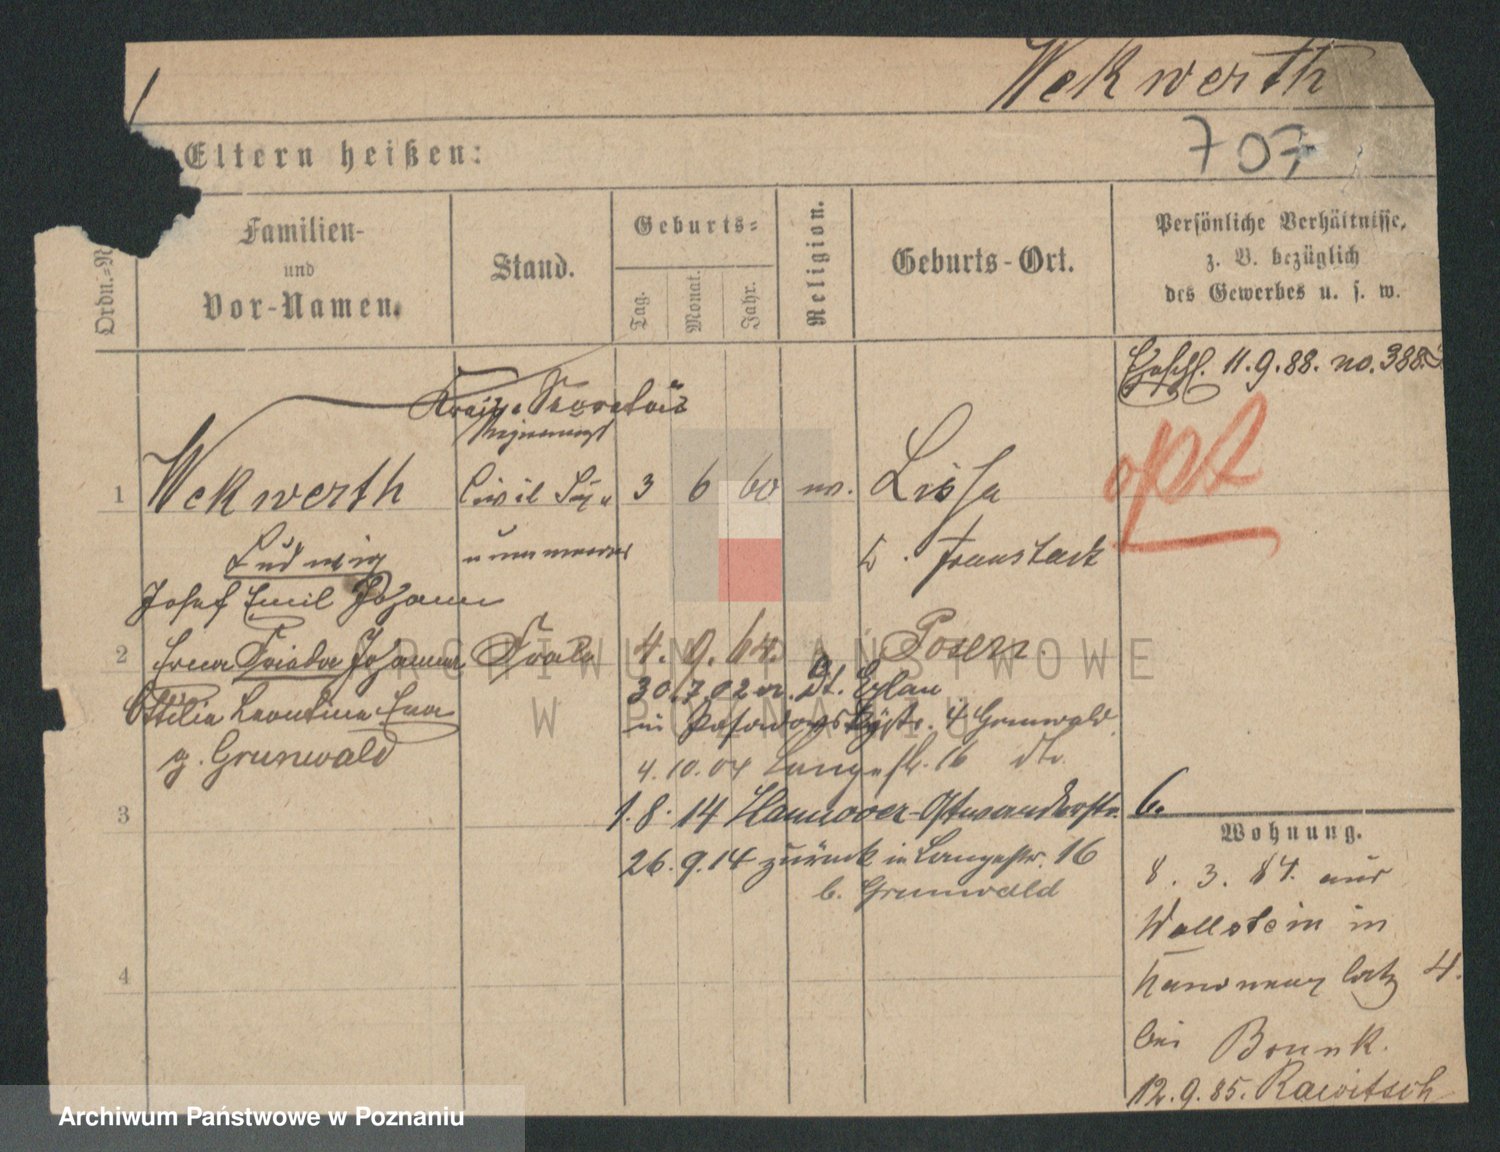 1
Wekwerth
707
Eltern heißen:
Ordn.-N
Familien-
und
Vor-Namen.
Stand.
Geburts-
Tag.
Monat.
Jahr.
Religion.
Geburts-Ort.
Persönliche Verhältnisse,
z. B. bezüglich
des Gewerbes u. s. w.
11.9.88. no. 388
Kreis-Secretair
opt
1 Wekwerth Civil 3 6 60 Lissa
Ludwig
Josef Emil Johann
Fraustadt
2 Erna Frieda Johanna 4. 9. 64. Posen.
Ottilie Leontine Erna
30.7.02 Dt. Eylau
in 4 Grunwald
g. Grunwald
4.10.04 Langestr. 16 dto.
3 1.8.14 Hannover- 6.
26.9.14 zurück in Langestr. 16
b. Grunwald
Wohnung.
8. 3. 84. aus
Wollstein in
4.
bei Brunk.
12.9.85. Rawitsch
4
ARCHIWUM PAŃSTWOWE
W POZNANIU
Archiwum Państwowe w Poznaniu